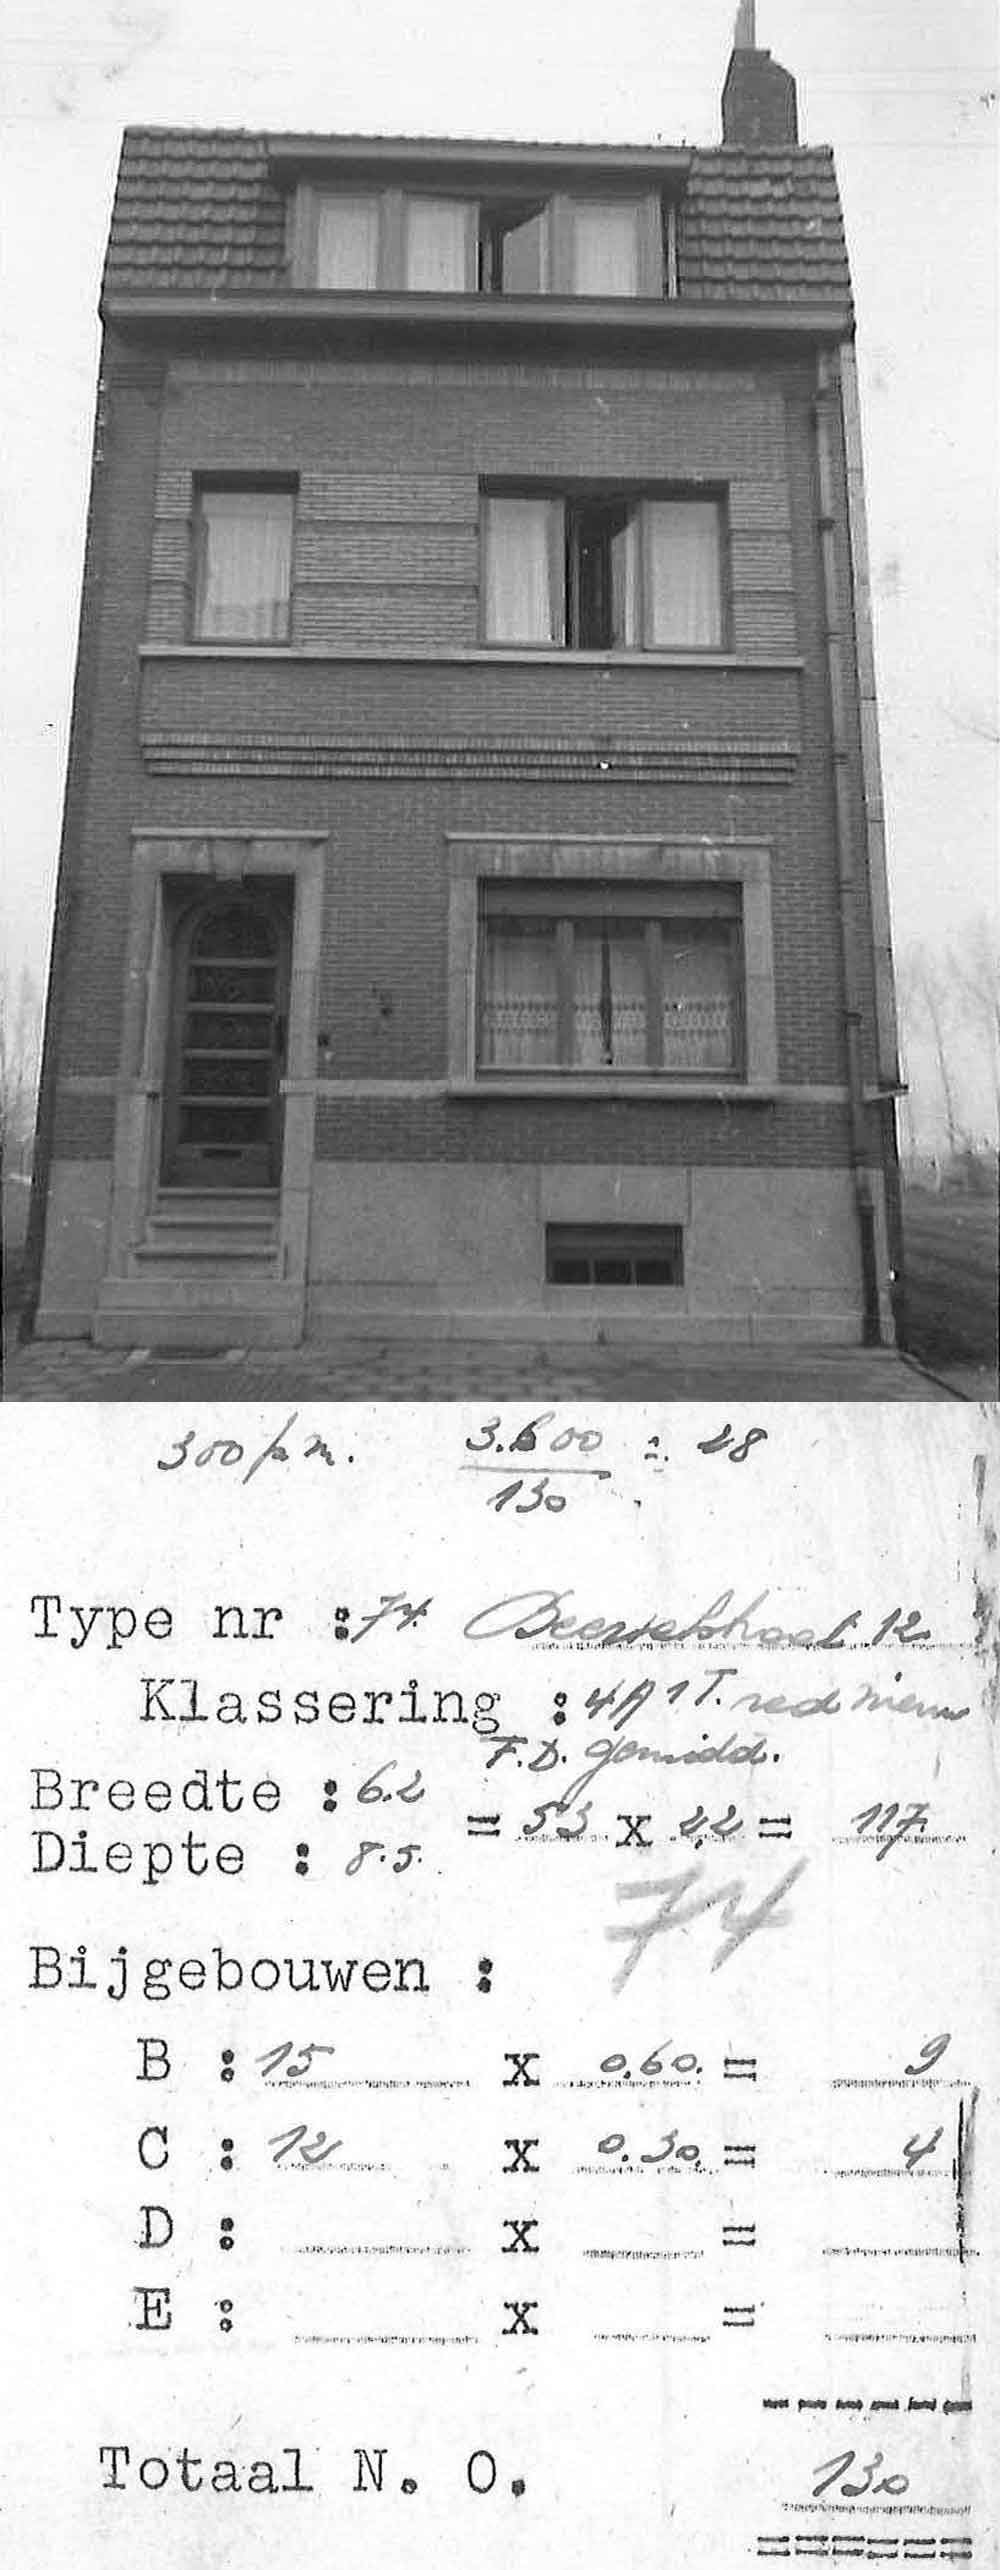 300 p.m. 3.600 = 28
130
Type nr : 74 12
Klassering : 4A 1 T. red nieuw
F.D. gemidd.
Breedte : 6.2
= 53 x 2,2 = 117
Diepte : 8.5.
74
Bijgebouwen :
B : 15 x 0.60. = 9
C : 12 x 0.30. = 4
D : x =
E : x =
Totaal N. O. 130